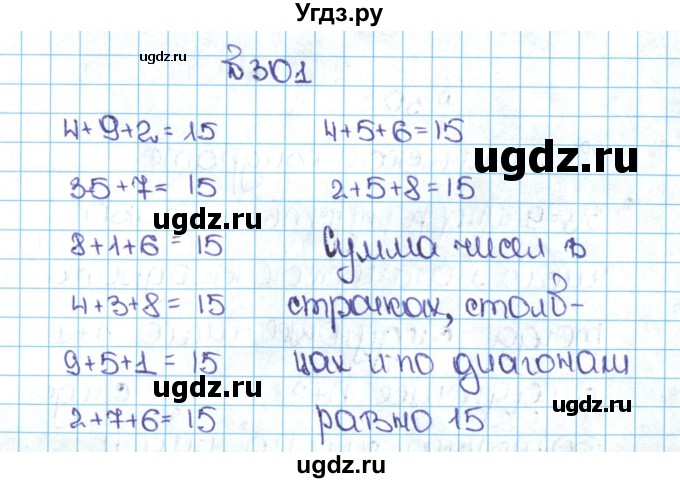 Угдз.ру
ugdz.ru
В 301
4+9+2=15
4+5+6=15
ugdz.ru
35+7=15
2+5+8=15
ugdz.ru
8+1+6=15
Сумма чисел в
4+3+8=15
строчках, столб-
ugdz.ru
9+5+1=15
цах и по диагонам
ugdz.ru
ugdz.ru
2+7+6=15
равно 15
ugdz.ru